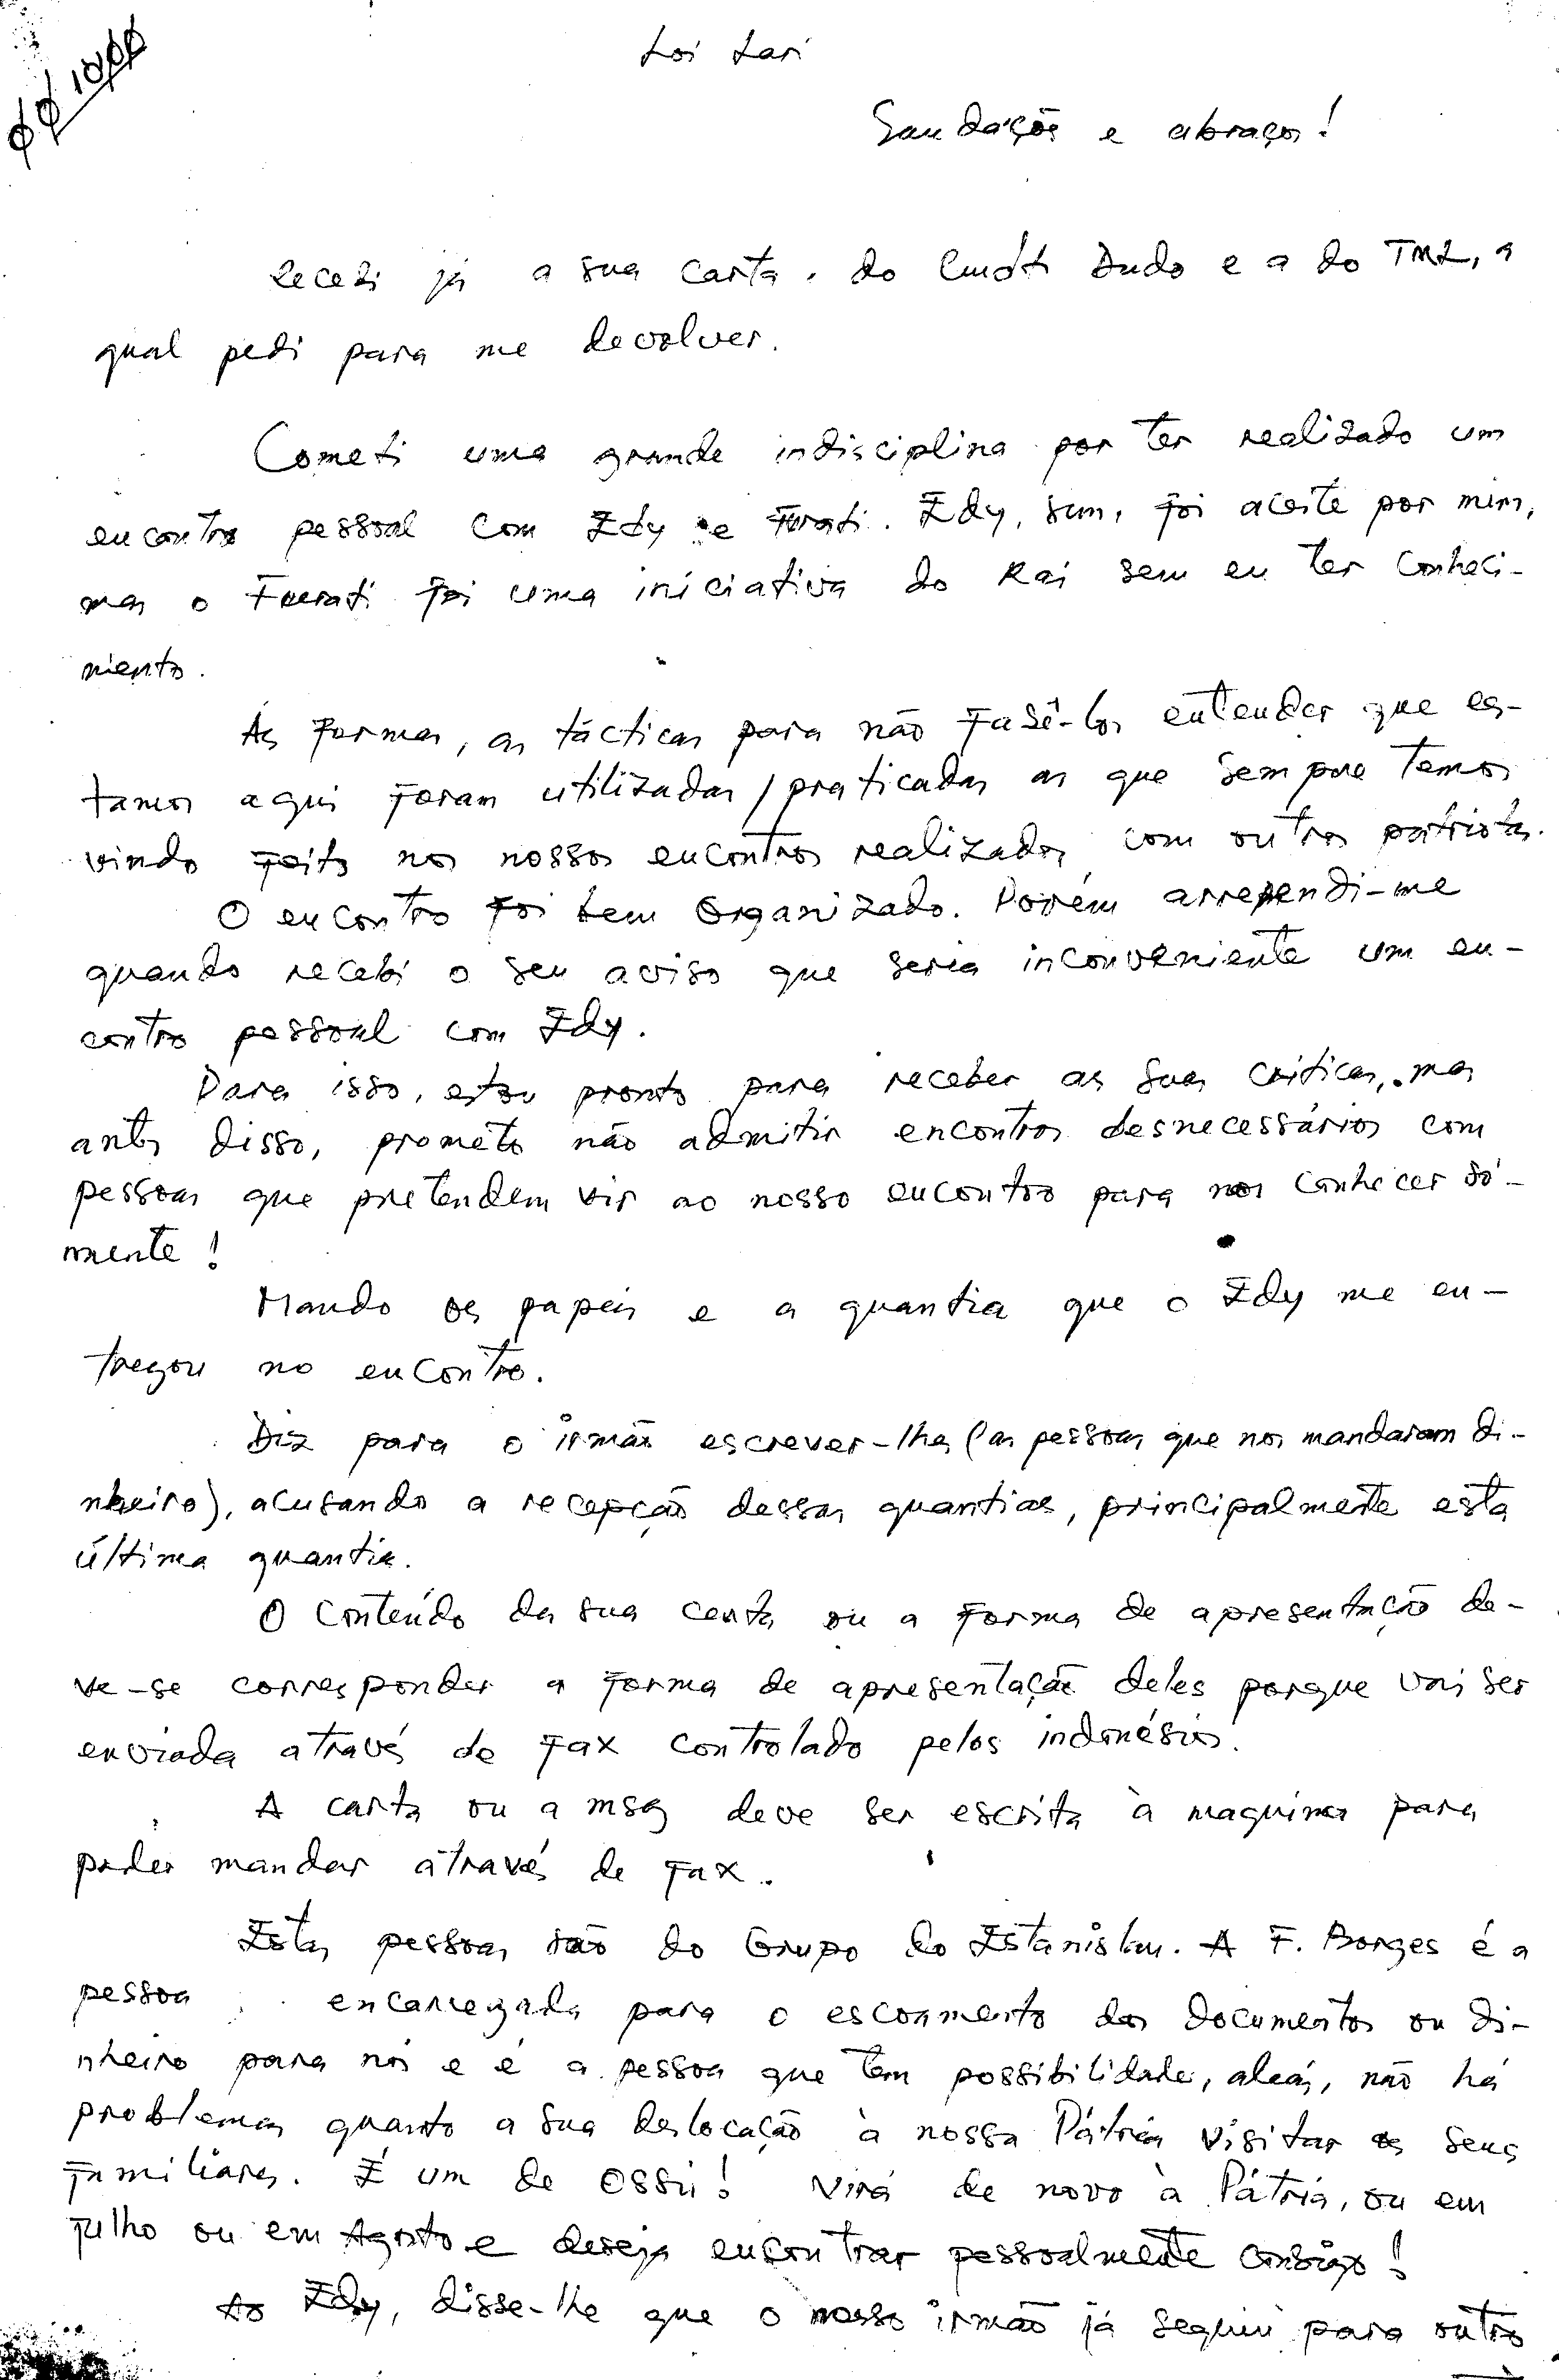 Loi Lari
Saudações e abraços!
Recebi já a sua carta, do Cmdt Dudo e a do TML, a
qual pedi para me devolver.
Cometi uma grande indisciplina por ter realizado um
encontro pessoal com Edy e Fuerati. Edy, sim, foi aceite por mim,
mas o Fuerati foi uma iniciativa do Rai sem eu ter conheci-
mento.
As formas, as tácticas para não fasê-los entender que es-
tamos aqui foram utilizadas/praticadas as que sempre temos
vindo feito nos nossos encontros realizados com outros patriotas.
O encontro foi bem organizado. Porém arrependi-me
quando recebi o seu aviso que seria inconveniente um en-
contro pessoal com Edy.
Para isso, estou pronto para receber as suas críticas, mas
antes disso, prometo não admitir encontros desnecessários com
pessoas que pretendem vir ao nosso encontro para nos conhecer só-
mente!
Mando os papeis e a quantia que o Edy me en-
tregou no encontro.
Diz para o irmão escrever-lhes (as pessoas que nos mandaram di-
nheiro), acusando a recepção dessas quantias, principalmente esta
última quantia.
O conteúdo da sua carta ou a forma de apresentação de-
ve-se corresponder a forma de apresentação deles porque vai ser
enviada através de fax controlado pelos indonésios.
A carta ou a msg deve ser escrita à maquina para
poder mandar através de fax.
Estas pessoas são do Grupo do Estanislau. A F. Borges é a
pessoa encarregada para o escoamento dos documentos ou di-
nheiro para nós e é a pessoa que tem possibilidade, aleás, não há
problemas quanto a sua deslocação à nossa Pátria visitar os seus
familiares. É um de Ossú! Virá de novo à Pátria, ou em
julho ou em Agosto e deseja encontrar pessoalmente consigo!
Ao Edy, disse-lhe que o nosso irmão já seguiu para outro